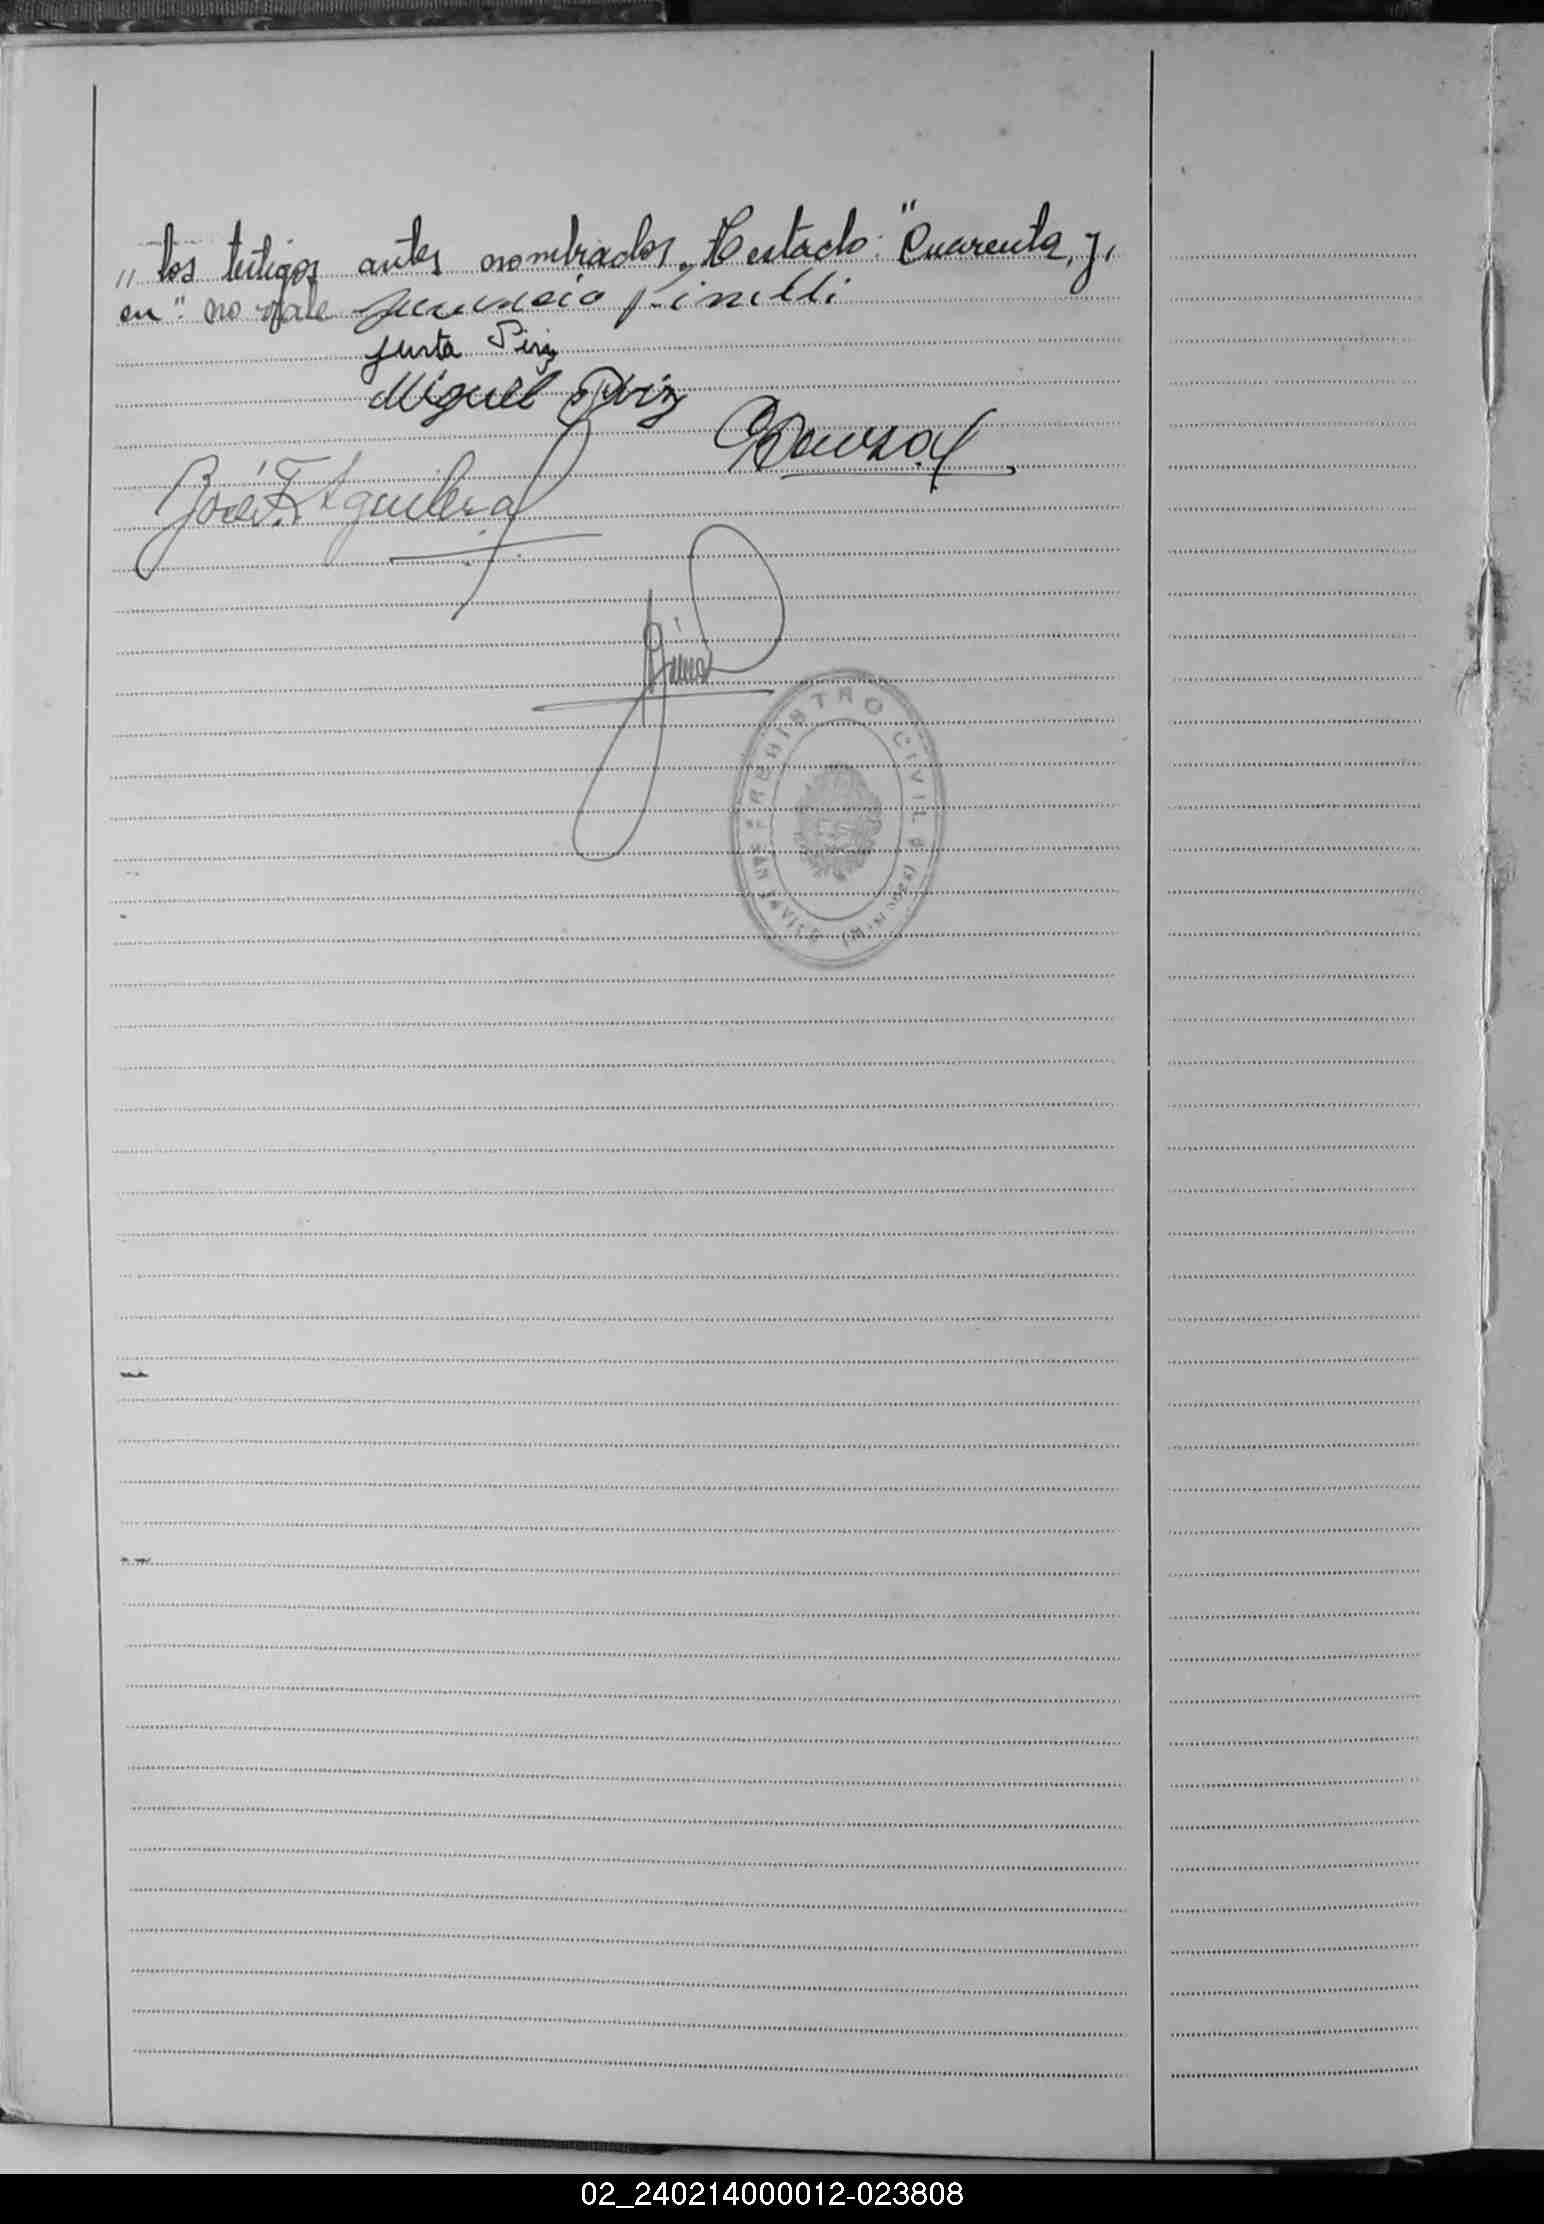 „ los testigos antes nombrados. Testado: "Cuarenta, y,
en": no vale Juvencio Pinelli
Justa Piriz
Miguel Piriz
José F. Aguilera
REGISTRO CIVIL
02_240214000012-023808